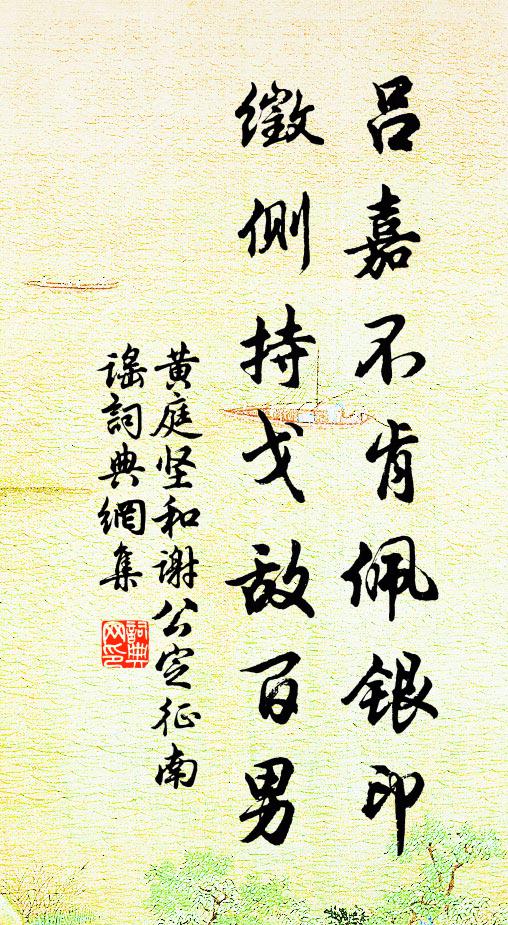 吕嘉不肯佩银印
徵侧持戈敌百男
黄庭坚和谢公定征南
谣词典網集
詞典
网印